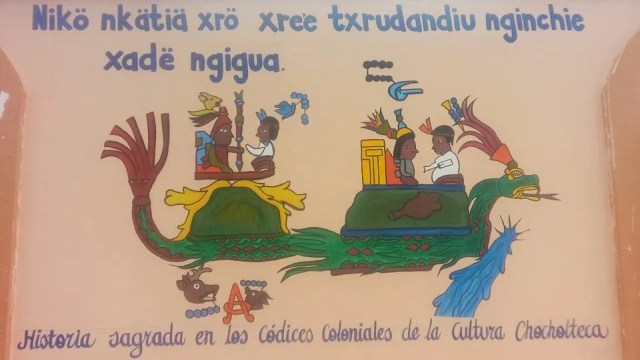 Nikö nkätiä xrö xreë txrudandiu nginchie
xadë ngigua.
A
Historia sagrada en los Códices Coloniales de la Cultura Chocholteca